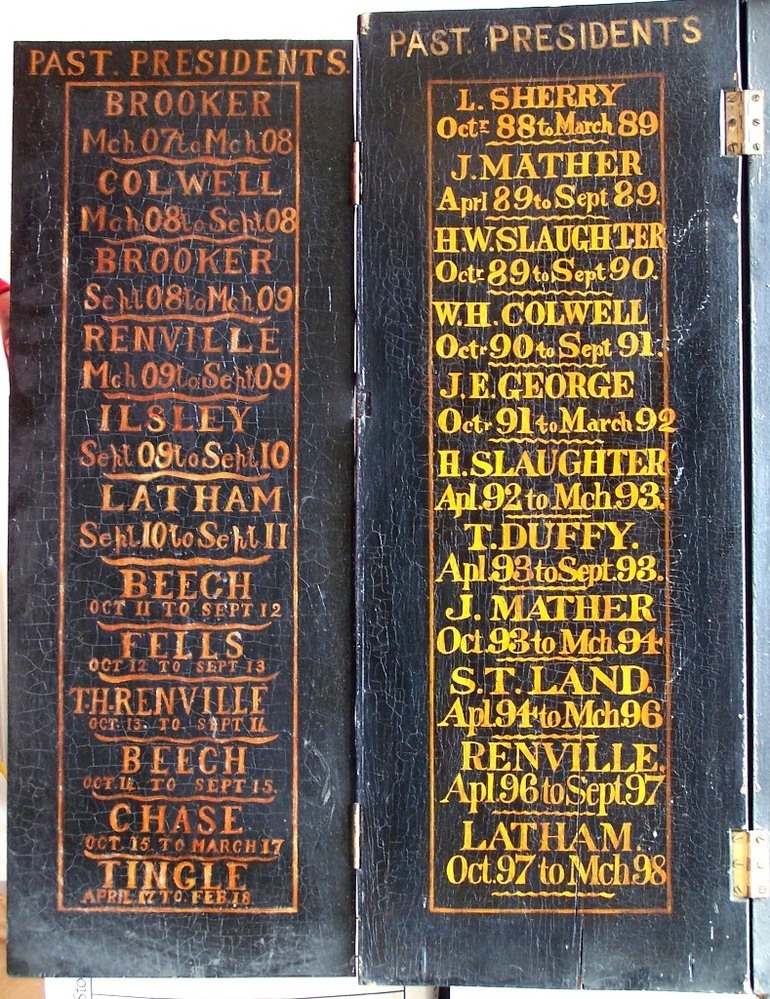 PAST. PRESIDENTS.
BROOKER
Mch 07 to Mch 08
COLWELL
Mch 08 to Sept 08
BROOKER
Sept 08 to Mch 09
RENVILLE
Mch 09 to Sept 09
ILSLEY
Sept 09 to Sept 10
LATHAM
Sept 10 to Sept 11
BEECH
OCT 11 TO SEPT 12
FELLS
OCT 12 TO SEPT 13
T.H.RENVILLE
OCT. 13. TO SEPT 14
BEECH
OCT. 14 TO SEPT 15.
CHASE
OCT. 15 TO MARCH 17
TINGLE
APRIL. 17 TO FEB. 18.
PAST. PRESIDENTS
L. SHERRY
Octr 88 to March 89
J. MATHER
Aprl 89 to Sept 89.
H.W.SLAUGHTER
Octr 89 to Sept 90.
W.H. COLWELL
Octr 90 to Sept 91.
J.E. GEORGE
Octr 91 to March 92
H. SLAUGHTER
Apl. 92 to Mch. 93.
T. DUFFY.
Apl. 93 to Sept. 93.
J. MATHER
Oct. 93 to Mch. 94
S.T. LAND.
Apl. 94 to Mch 96
RENVILLE.
Apl. 96 to Sept. 97
LATHAM.
Oct. 97 to Mch 98